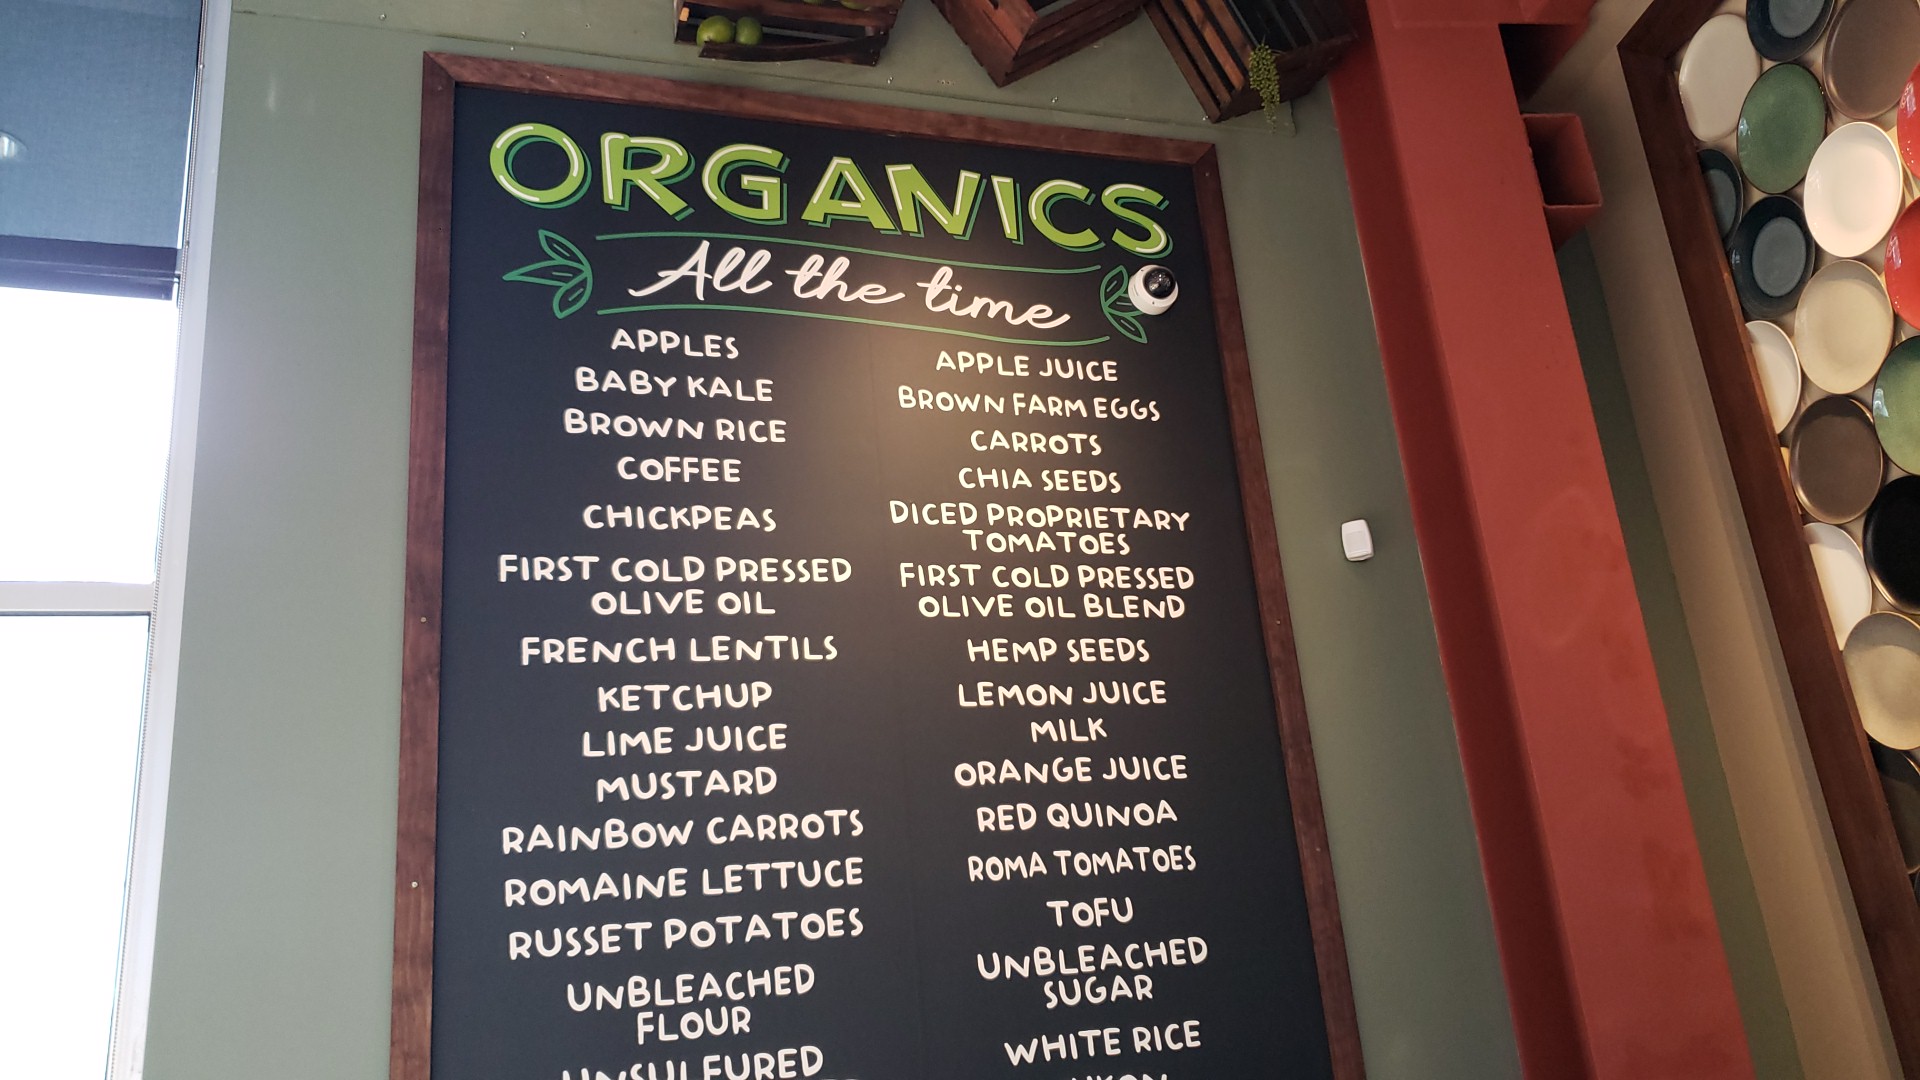 ORGANICS
All the time
APPLES
BABY KALE
BROWN RICE
COFFEE
CHICKPEAS
FIRST COLD PRESSED
OLIVE OIL
FRENCH LENTILS
KETCHUP
LIME JUICE
MUSTARD
RAINBOW CARROTS
ROMAINE LETTUCE
RUSSET POTATOES
UNBLEACHED
FLOUR
UNSULFURED
APPLE JUICE
BROWN FARM EGGS
CARROTS
CHIA SEEDS
DICED PROPRIETARY
TOMATOES
FIRST COLD PRESSED
OLIVE OIL BLEND
HEMP SEEDS
LEMON JUICE
MILK
ORANGE JUICE
RED QUINOA
ROMA TOMATOES
TOFU
UNBLEACHED
SUGAR
WHITE RICE